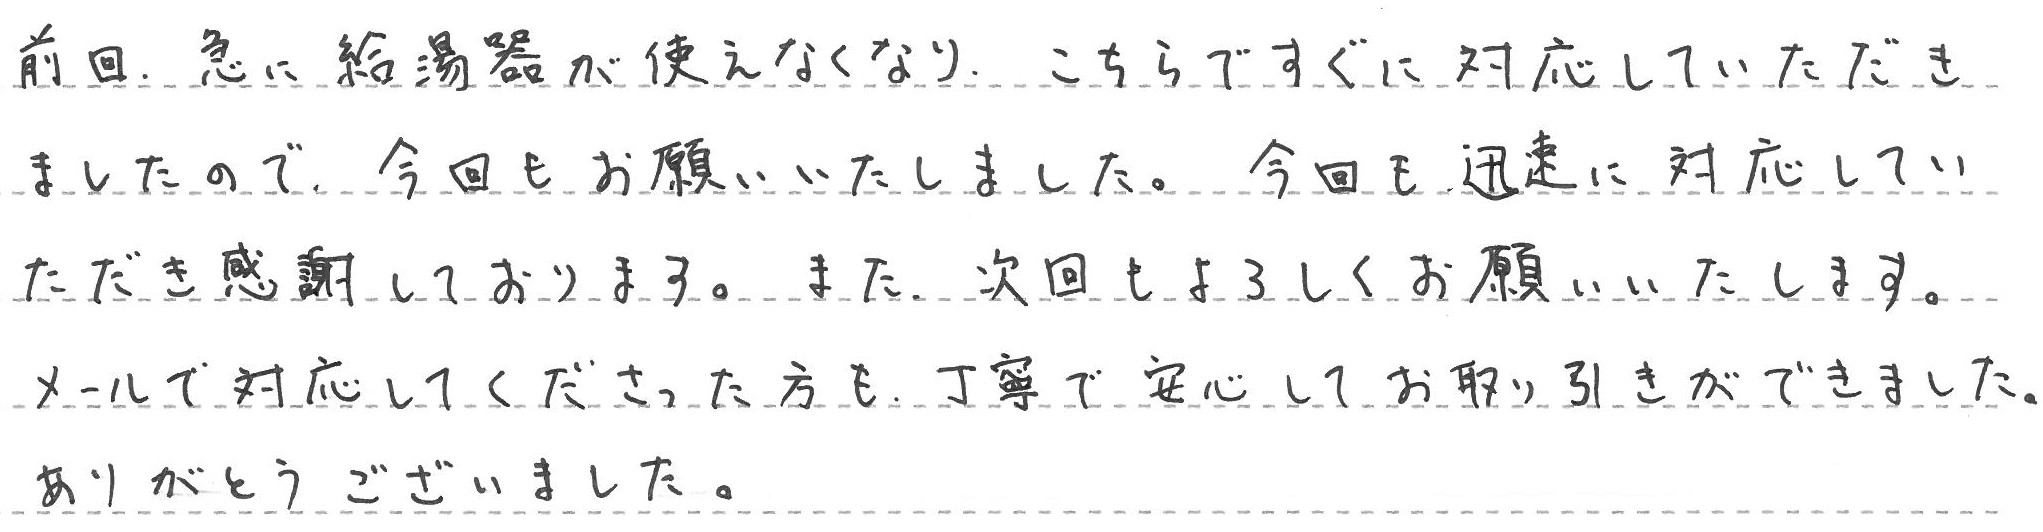 前回、急に給湯器が使えなくなり、こちらですぐに対応していただき
ましたので、今回もお願いいたしました。今回も迅速に対応してい
ただき感謝しております。また、次回もよろしくお願いいたします。
メールで対応してくださった方も、丁寧で安心してお取り引きができました。
ありがとうございました。